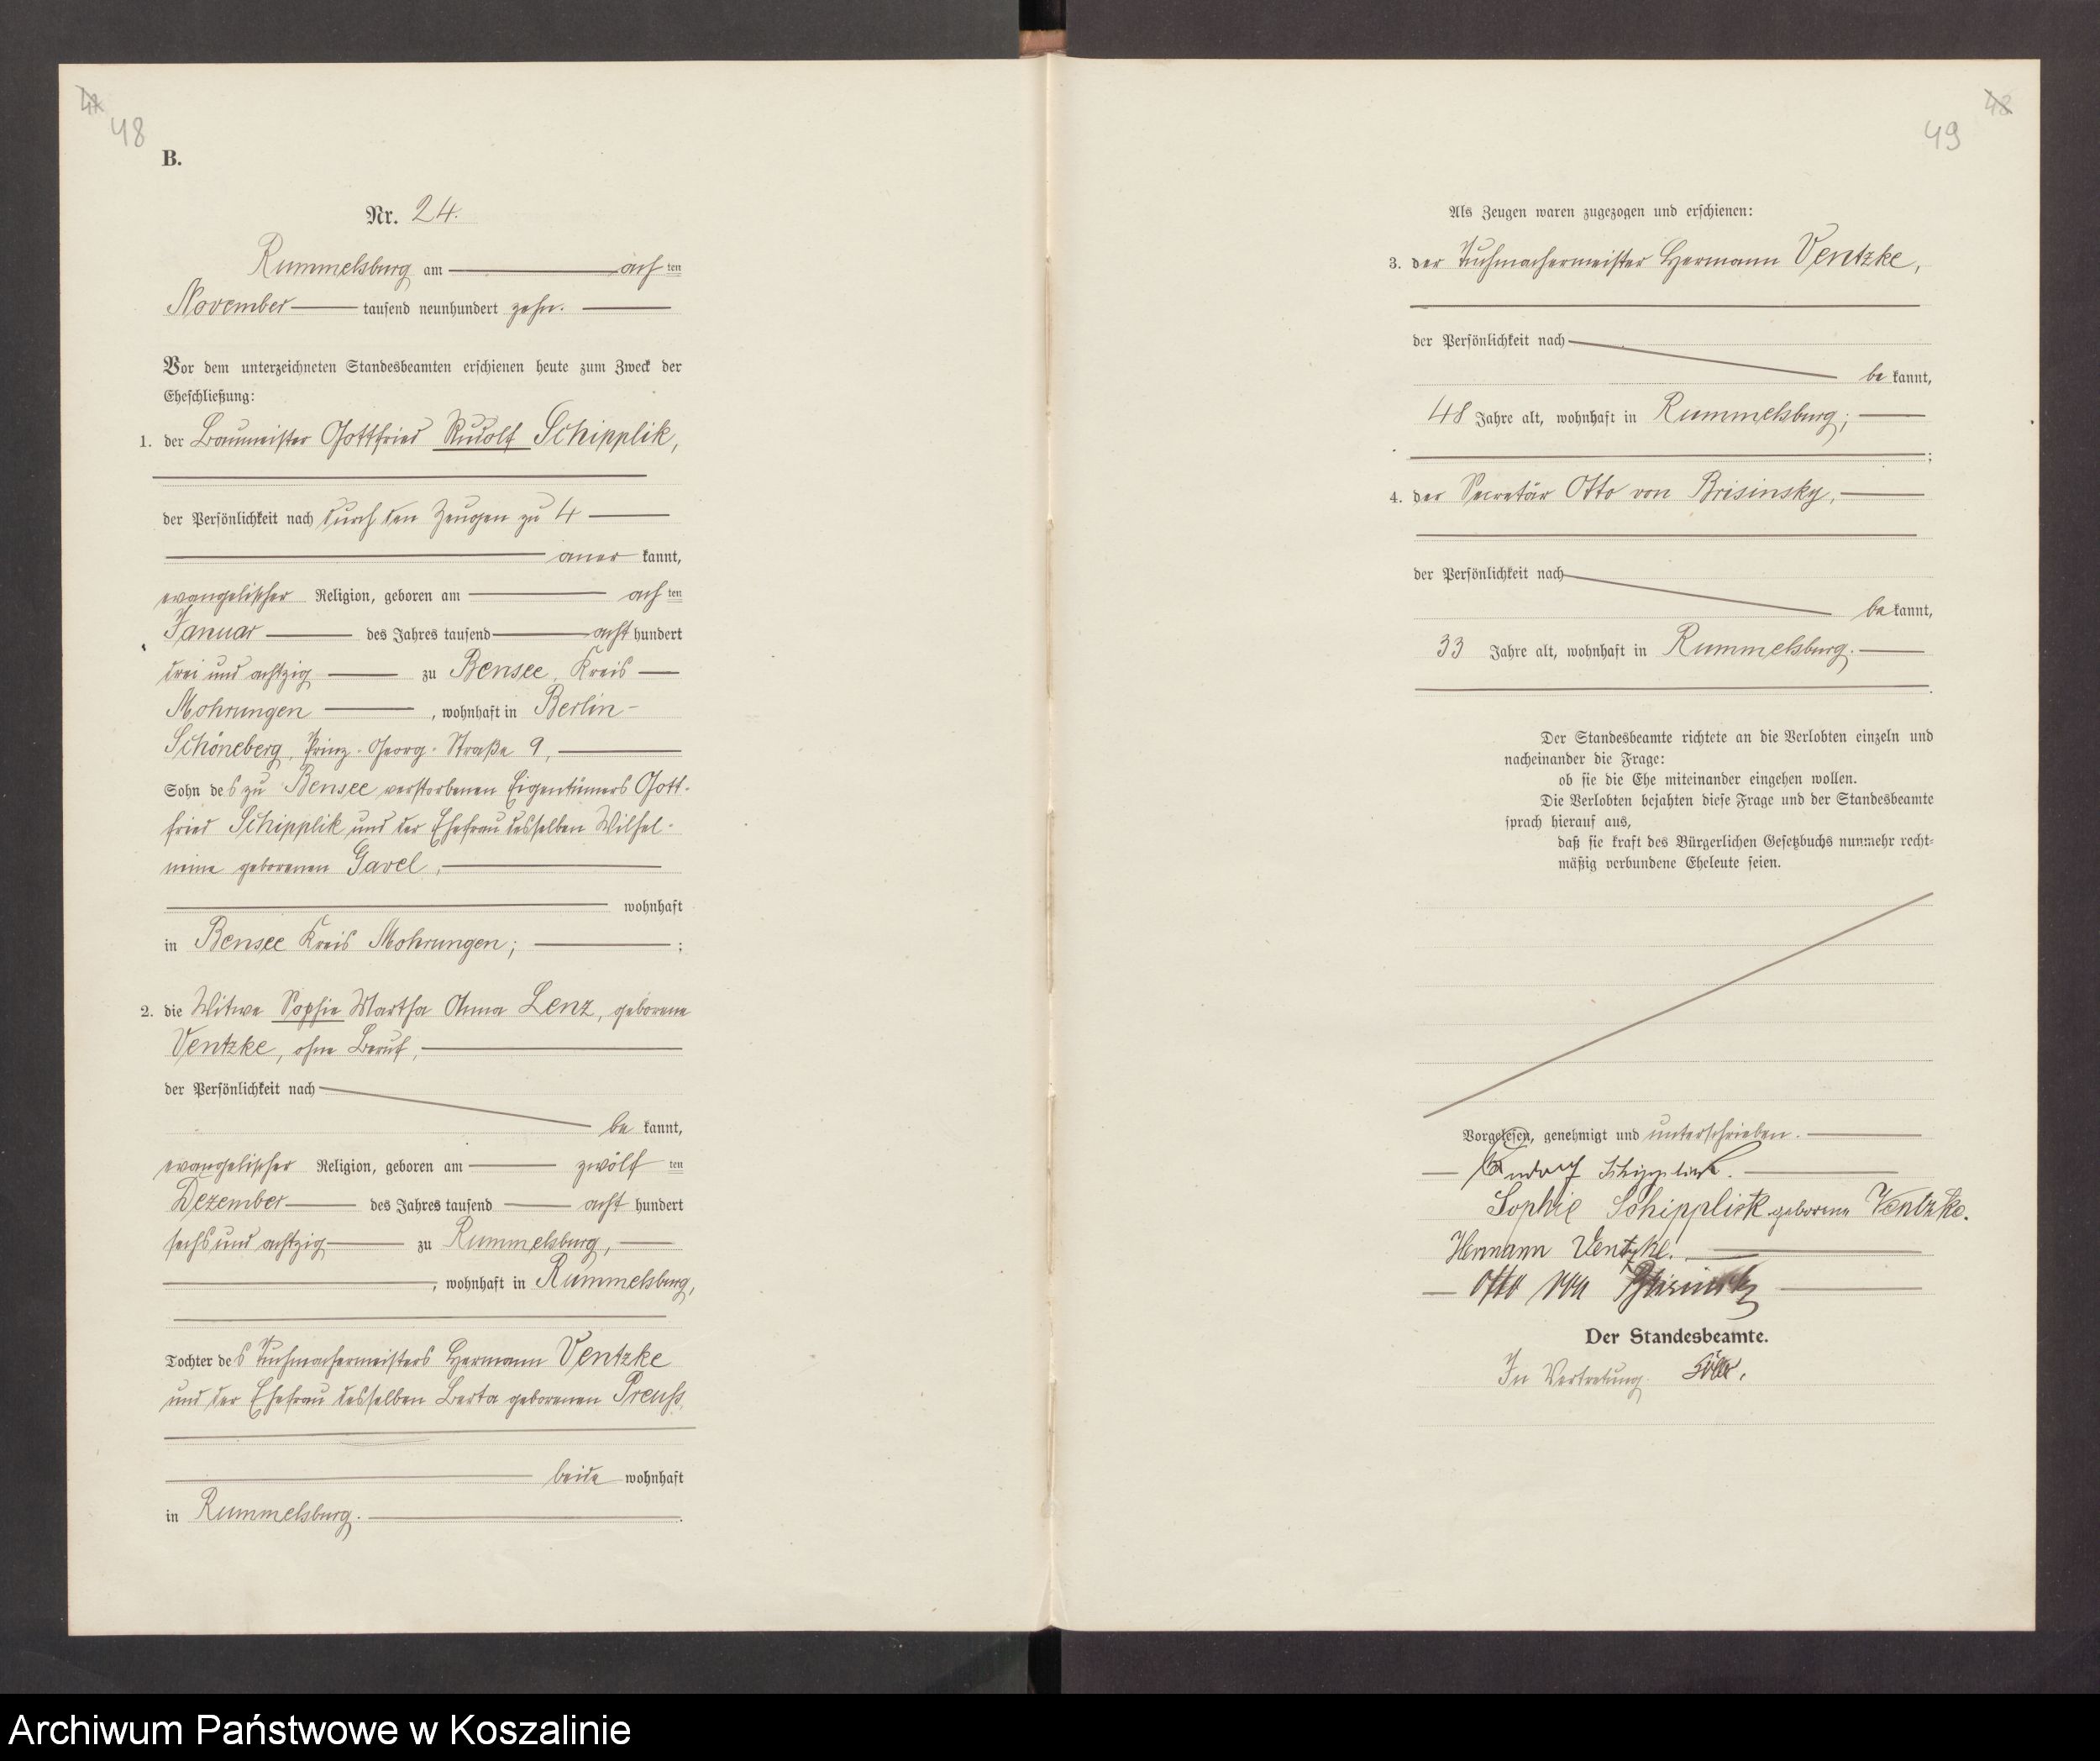 48
B.
Nr. 24.
Rummelsburg am achten
November tausend neunhundert zehn.
Vor dem unterzeichneten Standesbeamten erschienen heute zum Zweck der
Eheschließung:
1. der Baumeister Gottfried Rudolf Schipplik,
der Persönlichkeit nach durch den Zeugen zu 4
anerkannt,
evangelischer Religion, geboren am achten
Januar des Jahres tausend achthundert
drei und achtzig zu Bensee, Kreis
Mohrungen, wohnhaft in Berlin-
Schöneberg, Prinz-Georg-Straße 9,
Sohn des zu Bensee verstorbenen Eigentümers Gott-
fried Schipplik und der Ehefrau desselben Wilhel-
mine geborenen Gavel,
wohnhaft
in Bensee Kreis Mohrungen;
2. die Witwe Sophie Martha Anna Lenz, geborene
Ventzke, ohne Beruf,
der Persönlichkeit nach
bekannt,
evangelischer Religion, geboren am zwölften
Dezember des Jahres tausend achthundert
sechs und achtzig zu Rummelsburg,
, wohnhaft in Rummelsburg,
Tochter des Tuchmachermeisters Hermann Ventzke
und der Ehefrau desselben Berta geborenen Preuß,
beide wohnhaft
in Rummelsburg.
48
49
Als Zeugen waren zugezogen und erschienen:
3. der Tuchmachermeister Hermann Ventzke,
der Persönlichkeit nach
bekannt,
48 Jahre alt, wohnhaft in Rummelsburg;
4. der Secretär Otto von Brisinsky,
der Persönlichkeit nach
bekannt,
33 Jahre alt, wohnhaft in Rummelsburg.
Der Standesbeamte richtete an die Verlobten einzeln und
nacheinander die Frage:
ob sie die Ehe miteinander eingehen wollen.
Die Verlobten bejahten diese Frage und der Standesbeamte
sprach hierauf aus,
daß sie kraft des Bürgerlichen Gesetzbuchs nunmehr recht-
mäßig verbundene Eheleute seien.
Vorgelesen, genehmigt und unterschrieben.
Rudolf Schipplick.
Sophie Schipplick geborene Ventzke.
Hermann Ventzke.
Otto von Brisinsky
Der Standesbeamte.
In Vertretung.
Archiwum Państwowe w Koszalinie